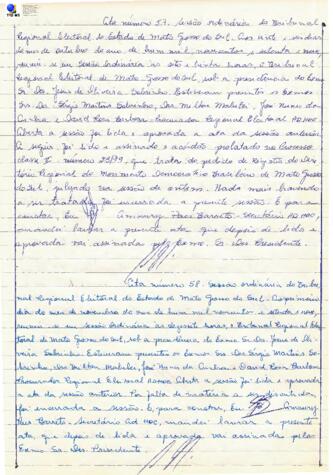 Ata número 57. Sessão ordinária do Tribunal
Regional Eleitoral do Estado de Mato Grosso do Sul. Aos vinte e
de outubro do ano de hum mil, novecentos e setenta e nove,
reuniu-se em sessão ordinária às sete e trinta horas, o Tribunal
Regional Eleitoral de Mato Grosso do Sul, sob a presidência do Exmo
Sr. Des. Jesus de Oliveira Sobrinho. Estiveram presentes os Exmos
Srs. Drs. Sérgio Martins Sobrinho, Milton Malulei, José Nunes da
Cunha e David Rosa Barbosa Procurador Regional Eleitoral AD HOC
Aberta a sessão foi lida e aprovada a ata da sessão anterior.
A seguir foi lido e assinado o acórdão prolatado no Processo
classe número 25/79, que trata do pedido de Registro do
tório Regional do Movimento Democrático Brasileiro de Mato Grosso
do Sul, julgado na sessão de ontem. Nada mais havendo
a ser tratado foi encerrada a presente sessão. E para
constar, Eu Amaury Pires Barreto, Secretário AD HOC,
mandei lavrar a presente ata que depois de lida e
aprovada vai assinada pelo Exmo. Sr. Des. Presidente.
Ata número 58. Sessão ordinária do Tribu-
nal Regional Eleitoral do Estado de Mato Grosso do Sul. Ao primeiro
dia do mês de novembro do ano de hum mil novecentos e setenta e nove,
reuniu-se em sessão ordinária às dezessete horas, o Tribunal Regional Eleitoral
de Mato Grosso do Sul, sob a presidência do Exmo Sr. Des. Jesus de Oli-
veira Sobrinho. Estiveram presentes os Exmos Srs. Drs Sérgio Martins So-
brinho, Milton Malulei, José Nunes da Cunha e David Rosa Barbosa
Procurador Regional Eleitoral AD HOC. Aberta a sessão foi lida e aprovada
a ata da sessão anterior. Por falta de matéria a ser discutida,
foi encerrada a sessão. E, para constar, Eu Amaury
Pires Barreto - Secretário Ad HOC, mandei lavrar a presente
ata, que depois de lida e aprovada vai assinada pelo
Exmo Sr. Des. Presidente